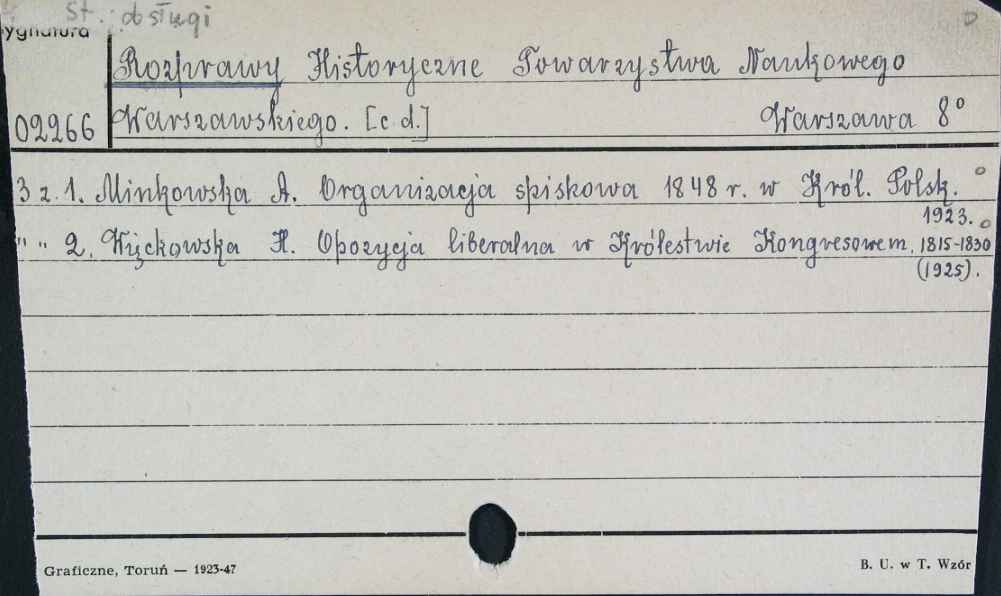 St. obsługi
Sygnatura
Rozprawy Historyczne Towarzystwa Naukowego
02266 Warszawskiego. [c d.] Warszawa 8°
3 z. 1. Minkowska A. Organizacja spiskowa 1848 r. w Król. Polsk.
1923.
" " 2. Więckowska H. Opozycja liberalna w Królestwie Kongresowem. 1815-1830
(1925).
Graficzne, Toruń — 1923-47
B. U. w T. Wzór